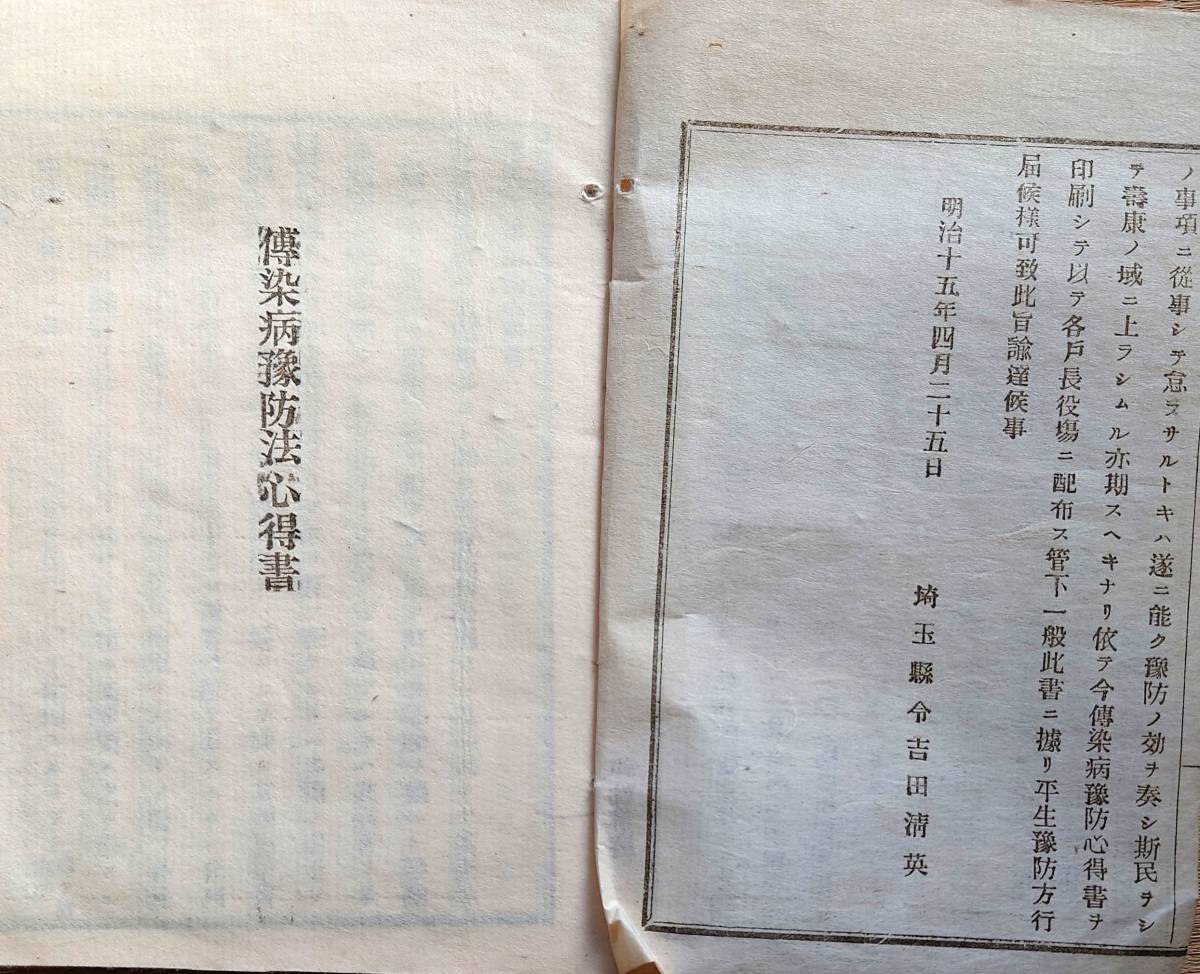 ノ事項ニ從事シテ怠ラサルトキハ遂ニ能ク豫防ノ効ヲ奏シ斯民ヲシ
テ壽康ノ域ニ上ラシムル亦期スヘキナリ依テ今傳染病豫防心得書ヲ
印刷シテ以テ各戸長役塲ニ配布ス管下一般此書ニ據リ平生豫防方行
届候樣可致此旨諭達候事
明治十五年四月二十五日
埼玉縣令吉田淸英
傳染病豫防法心得書